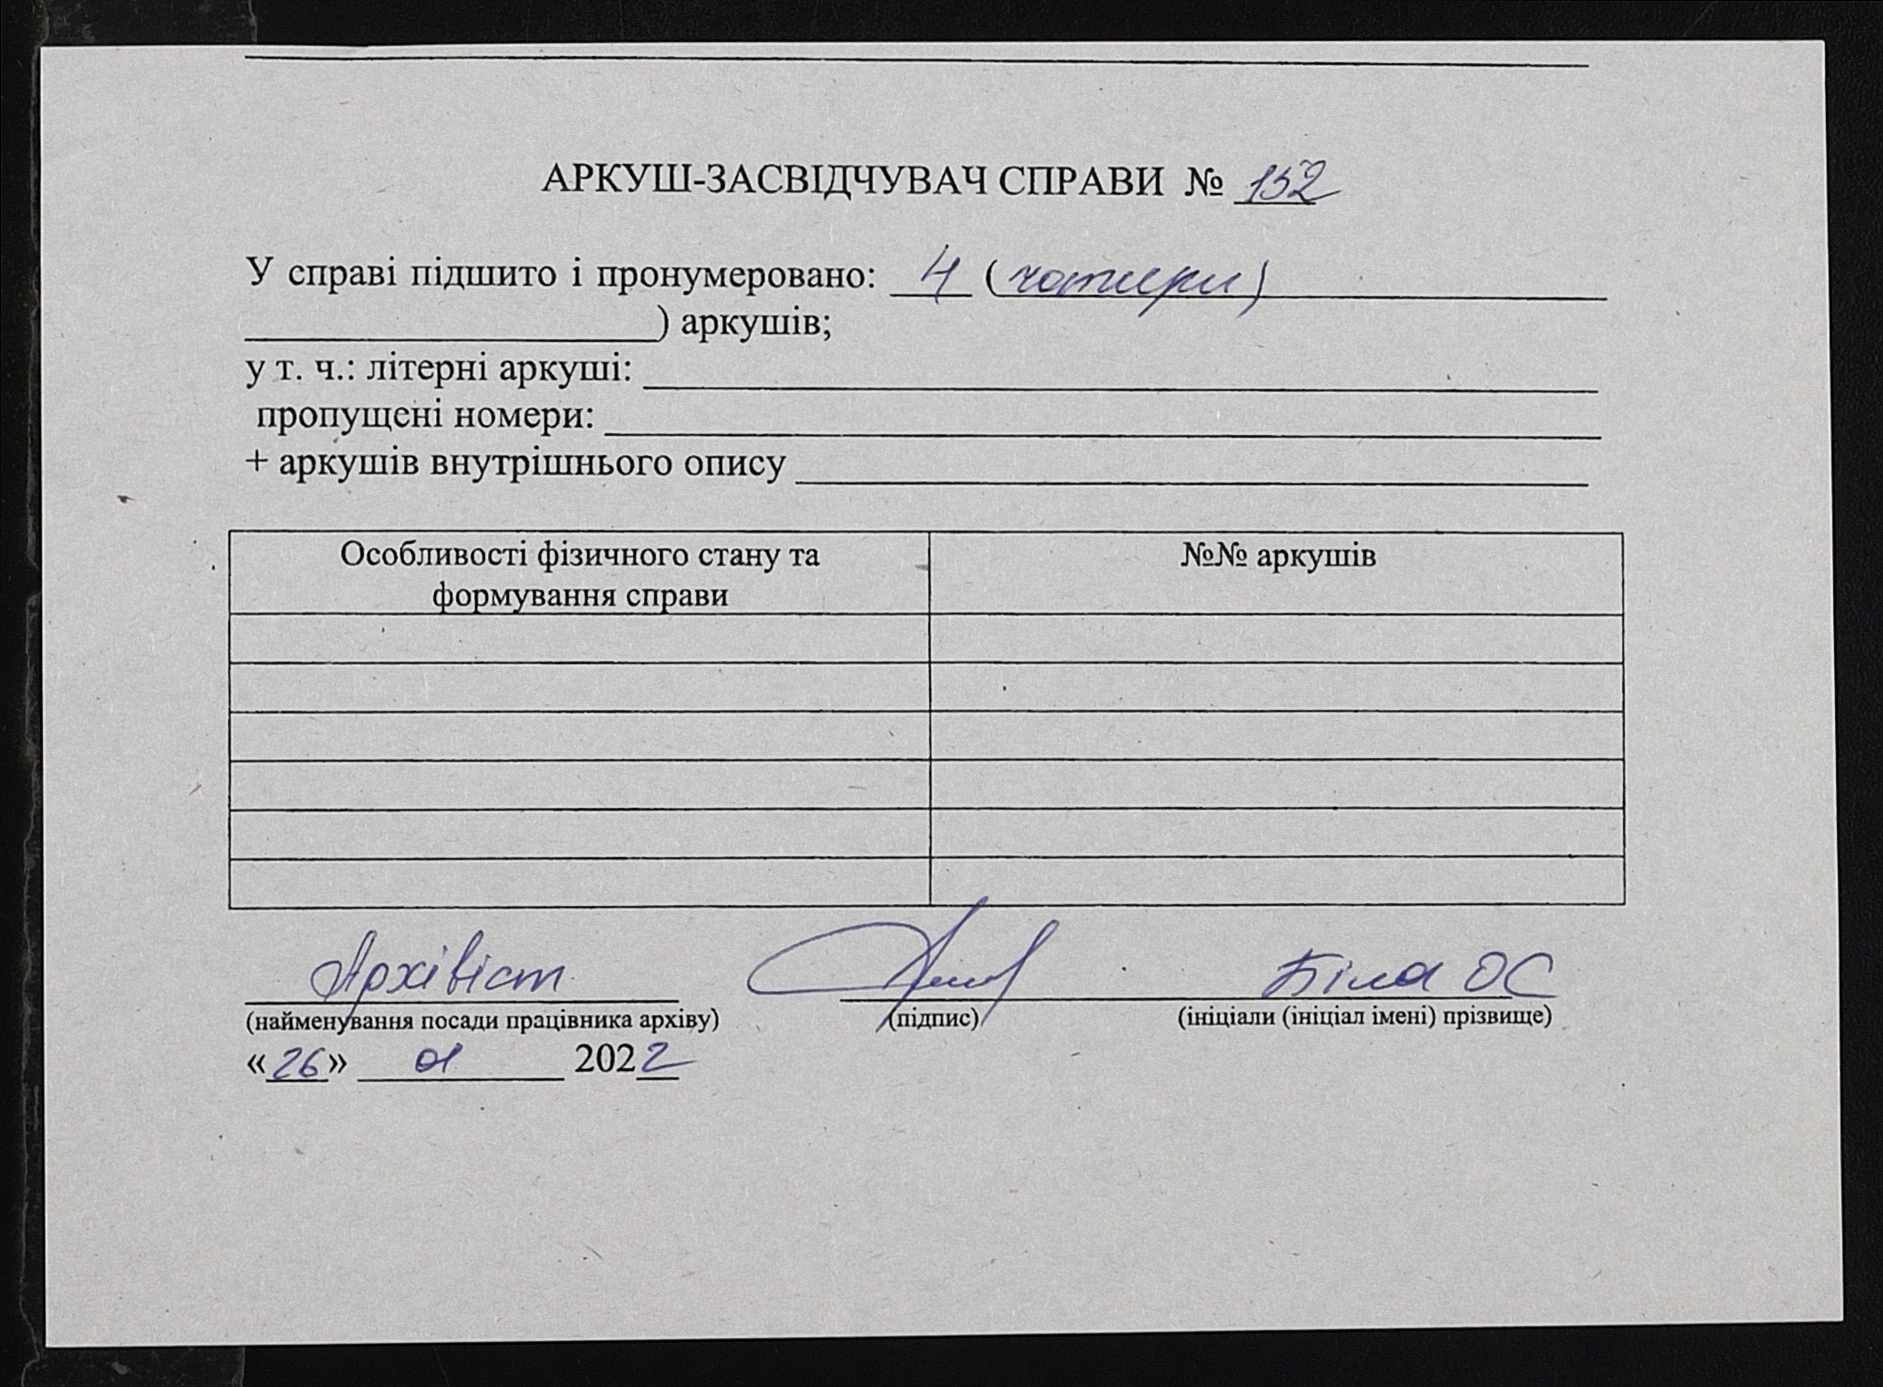 АРКУШ-ЗАСВІДЧУВАЧ СПРАВИ № 152
У справі підшито і пронумеровано: 4 (чотири)
) аркушів;
у т. ч.: літерні аркуші:
пропущені номери:
+ аркушів внутрішнього опису
Особливості фізичного стану та
формування справи
№№ аркушів
Архівіст Біла ОС
(найменування посади працівника архіву) (підпис) (ініціали (ініціал імені) прізвище)
«26» 01 2022